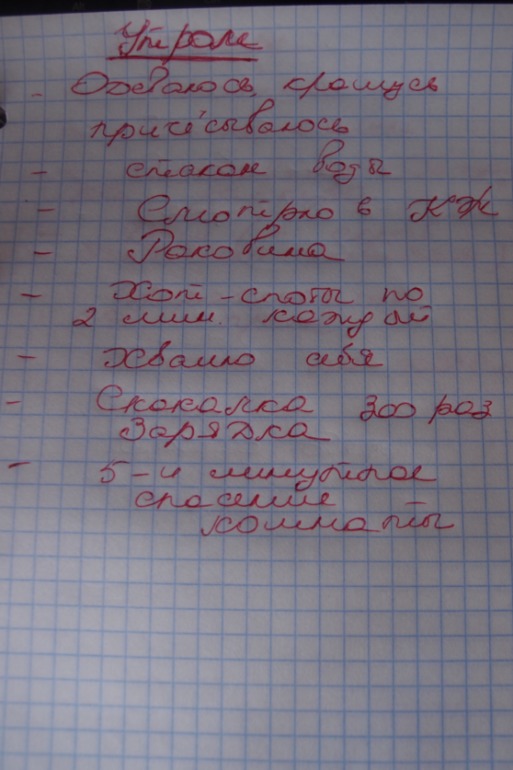 Утром
- Одеваюсь, крашусь
причёсываюсь
- стакан воды
- Смотрю в КЖ
- Раковина
- Хот-споты по
2 мин. каждый
- Хвалю себя
- Скакалка 300 раз
Зарядка
- 5-и минутное
спасение
комнаты